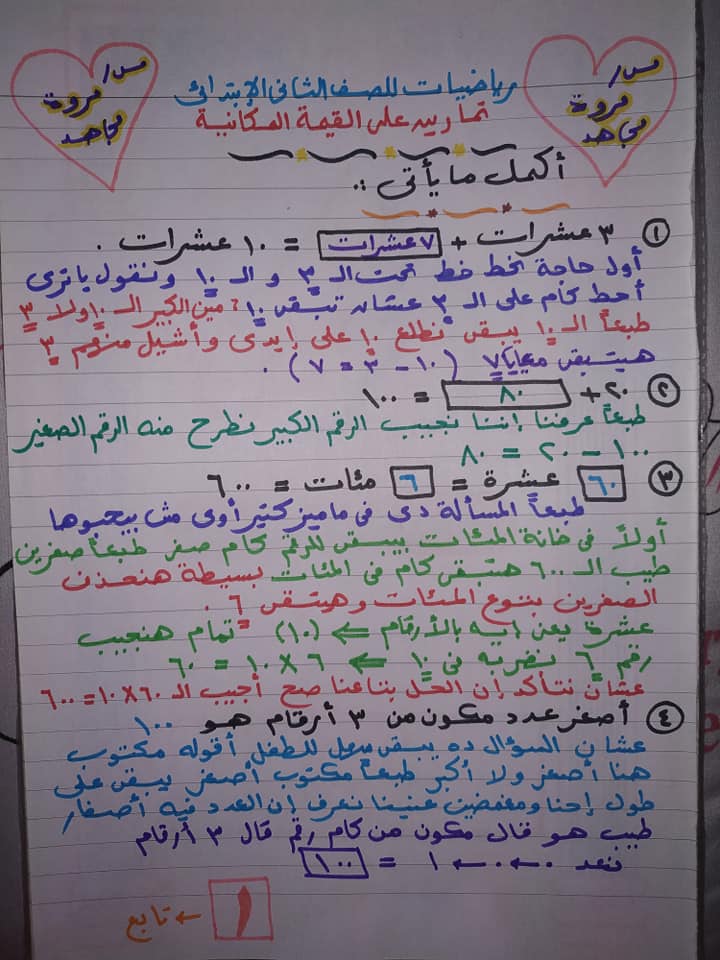 مس/ مروة مجاهد
مس/ مروة مجاهد
رياضيات للصف الثاني الإبتدائى
تمارين على القيمة المكانية
أكمل ما يأتى :.
١ ٣ عشرات + ٧ عشرات = ١٠ عشرات .
أول حاجة نحط خط تحت الـ ٣ و الـ ١٠ ونقول ياترى
أحط كام على الـ ٣ عشان تبقى ١٠ ؟ مين الكبير الـ ١٠ ولا ٣
طبعاً الـ ١٠ يبقى نطلع ١٠ على إيدى وأشيل منهم ٣
هيتبقى معايا ٧ ( ١٠ - ٣ = ٧ ) .
٢ ٢٠ + ٨٠ = ١٠٠
طبعاً عرفنا إننا نجيب الرقم الكبير نطرح منه الرقم الصغير
١٠٠ - ٢٠ = ٨٠
٣ ٦٠ عشرة = ٦ مئات = ٦٠٠
طبعاً المسألة دى فى ماميز كتير أوى مش بيحبوها
أولاً فى خانة المئات بيبقى للرقم كام صفر طبعاً صفرين
طيب الـ ٦٠٠ هتبقى كام فى المئات بسيطة هنحذف
الصفرين بتوع المئات وهيتبقى ٦ .
عشرة يعنى ايه بالأرقام ⇐ (١٠) تمام هنجيب
رقم ٦ نضربه فى ١٠ ⇐ ٦ × ١٠ = ٦٠
عشان نتأكد إن الحل بتاعنا صح أجيب الـ ٦٠ × ١٠ = ٦٠٠
٤ أصغر عدد مكون من ٣ أرقام هو ١٠٠
عشان السؤال ده يبقى سهل للطفل أقوله مكتوب
هنا أصغر ولا أكبر طبعاً مكتوب أصغر يبقى على
طول إحنا ومغمضين عنينا نعرف إن العدد فيه أصفار
طيب هو قال مكون من كام رقم قال ٣ أرقام
نعد ٠ ← ٠ ← ١ = ١٠٠
١
← تابع